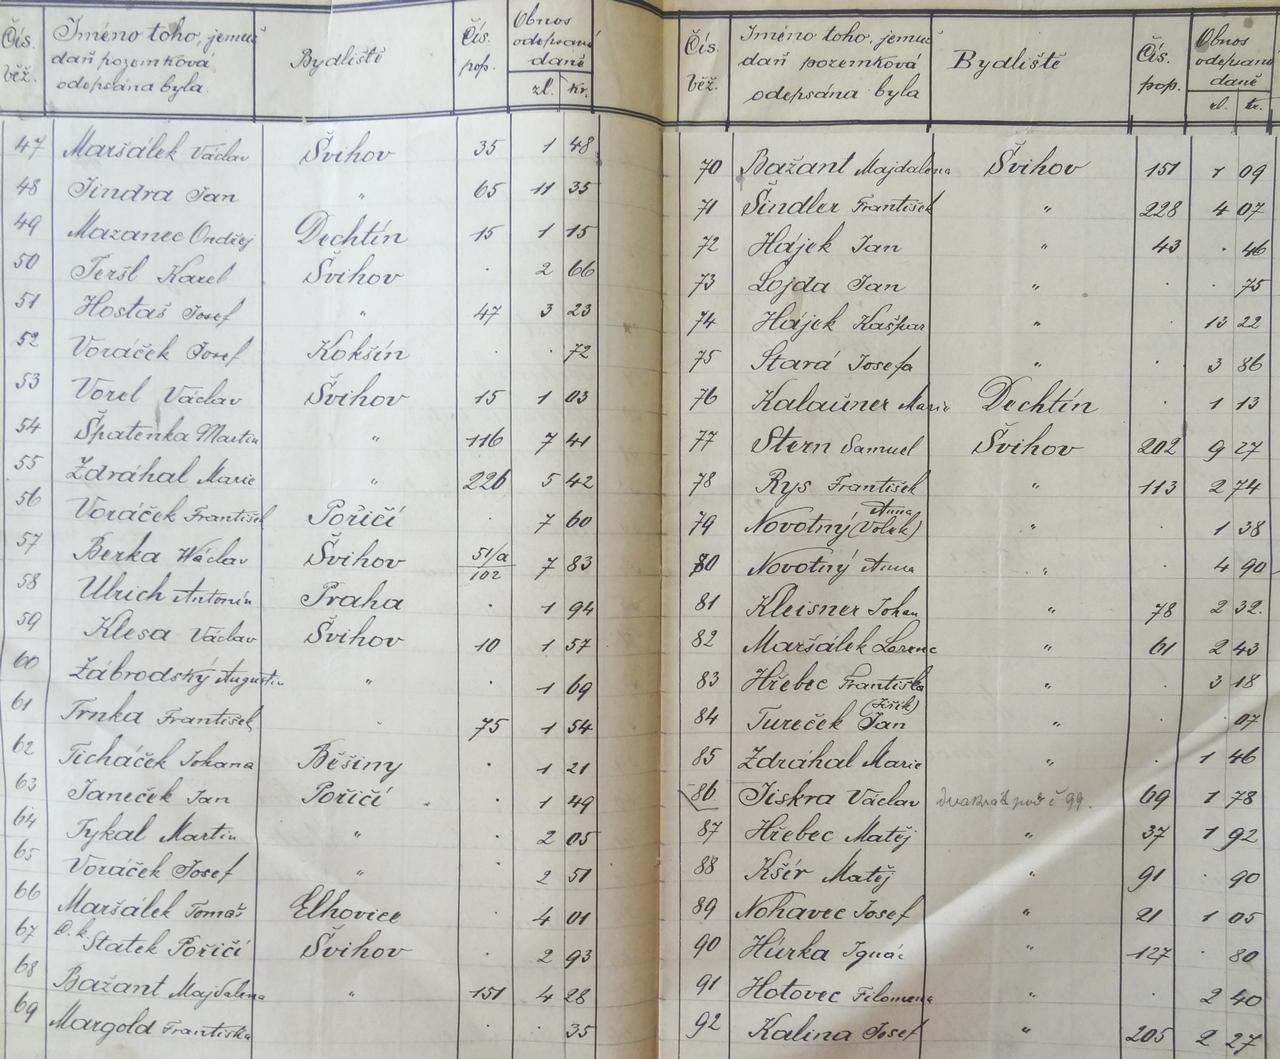 Čís. běž. Jméno toho, jemuž daň pozemková odepsána byla. Bydliště Čís. pop. Obnos odepsané daně zl. kr.
47 Maršálek Václav Švihov 35 1 48
48 Jindra Jan " 65 11 35
49 Mazanec Ondřej Dechtín 15 1 15
50 Teršl Karel Švihov . 2 66
51 Hostaš Josef " 47 3 23
52 Voráček Josef Kokšín . . 72
53 Vorel Václav Švihov 15 1 03
54 Špatenka Martin " 116 7 41
55 Zdráhal Marie " 226 5 42
56 Voráček František Poříčí . 7 60
57 Berka Wáclav Švihov 51/a 102 7 83
58 Ulrich Antonín Praha . 1 94
59 Klesa Václav Švihov 10 1 57
60 Zábrodský Augustin " . 1 69
61 Trnka František " 75 1 54
62 Ticháček Johana Běšiny . 1 21
63 Janeček Jan Poříčí . 1 49
64 Tykal Martin " . 2 05
65 Voráček Josef " . 2 51
66 Maršálek Tomáš Elhovice . 4 01
67 C. k. Statek Poříčí Švihov . 2 93
68 Bažant Majdalena " 151 4 28
69 Margold Františka . . 35
Čís. běž. Jméno toho, jemuž daň pozemková odepsána byla Bydliště Čís. pop. Obnos odepsané daně zl. kr.
70 Bažant Majdalena Švihov 151 1 09
71 Šindler František " 228 4 07
72 Hájek Jan " 43 . 46
73 Lojda Jan " . . 75
74 Hájek Kašpar " . 13 22
75 Stará Josefa " . 3 86
76 Kalaúner Marie Dechtín . 1 13
77 Stern Samuel Švihov 202 9 27
78 Rys František " 113 2 74
79 Novotný Anna (Volek) " . 1 38
80 Novotný Anna " . 4 90
81 Kleisner Johan " 78 2 32.
82 Maršálek Lorenc " 61 2 43
83 Hřebec Františka " . 3 18
84 Tureček Jan (Jiřík) " . . 07
85 Zdráhal Marie " . 1 46
86 Jiskra Václav dvakrát pod č 99. 69 1 78
87 Hřebec Matěj " 37 1 92
88 Kšír Matěj " 91 . 90
89 Nohavec Josef " 21 1 05
90 Húrka Ignác " 127 . 80
91 Hotovec Filomena " . 2 40
92 Kalina Josef " 205 2 27